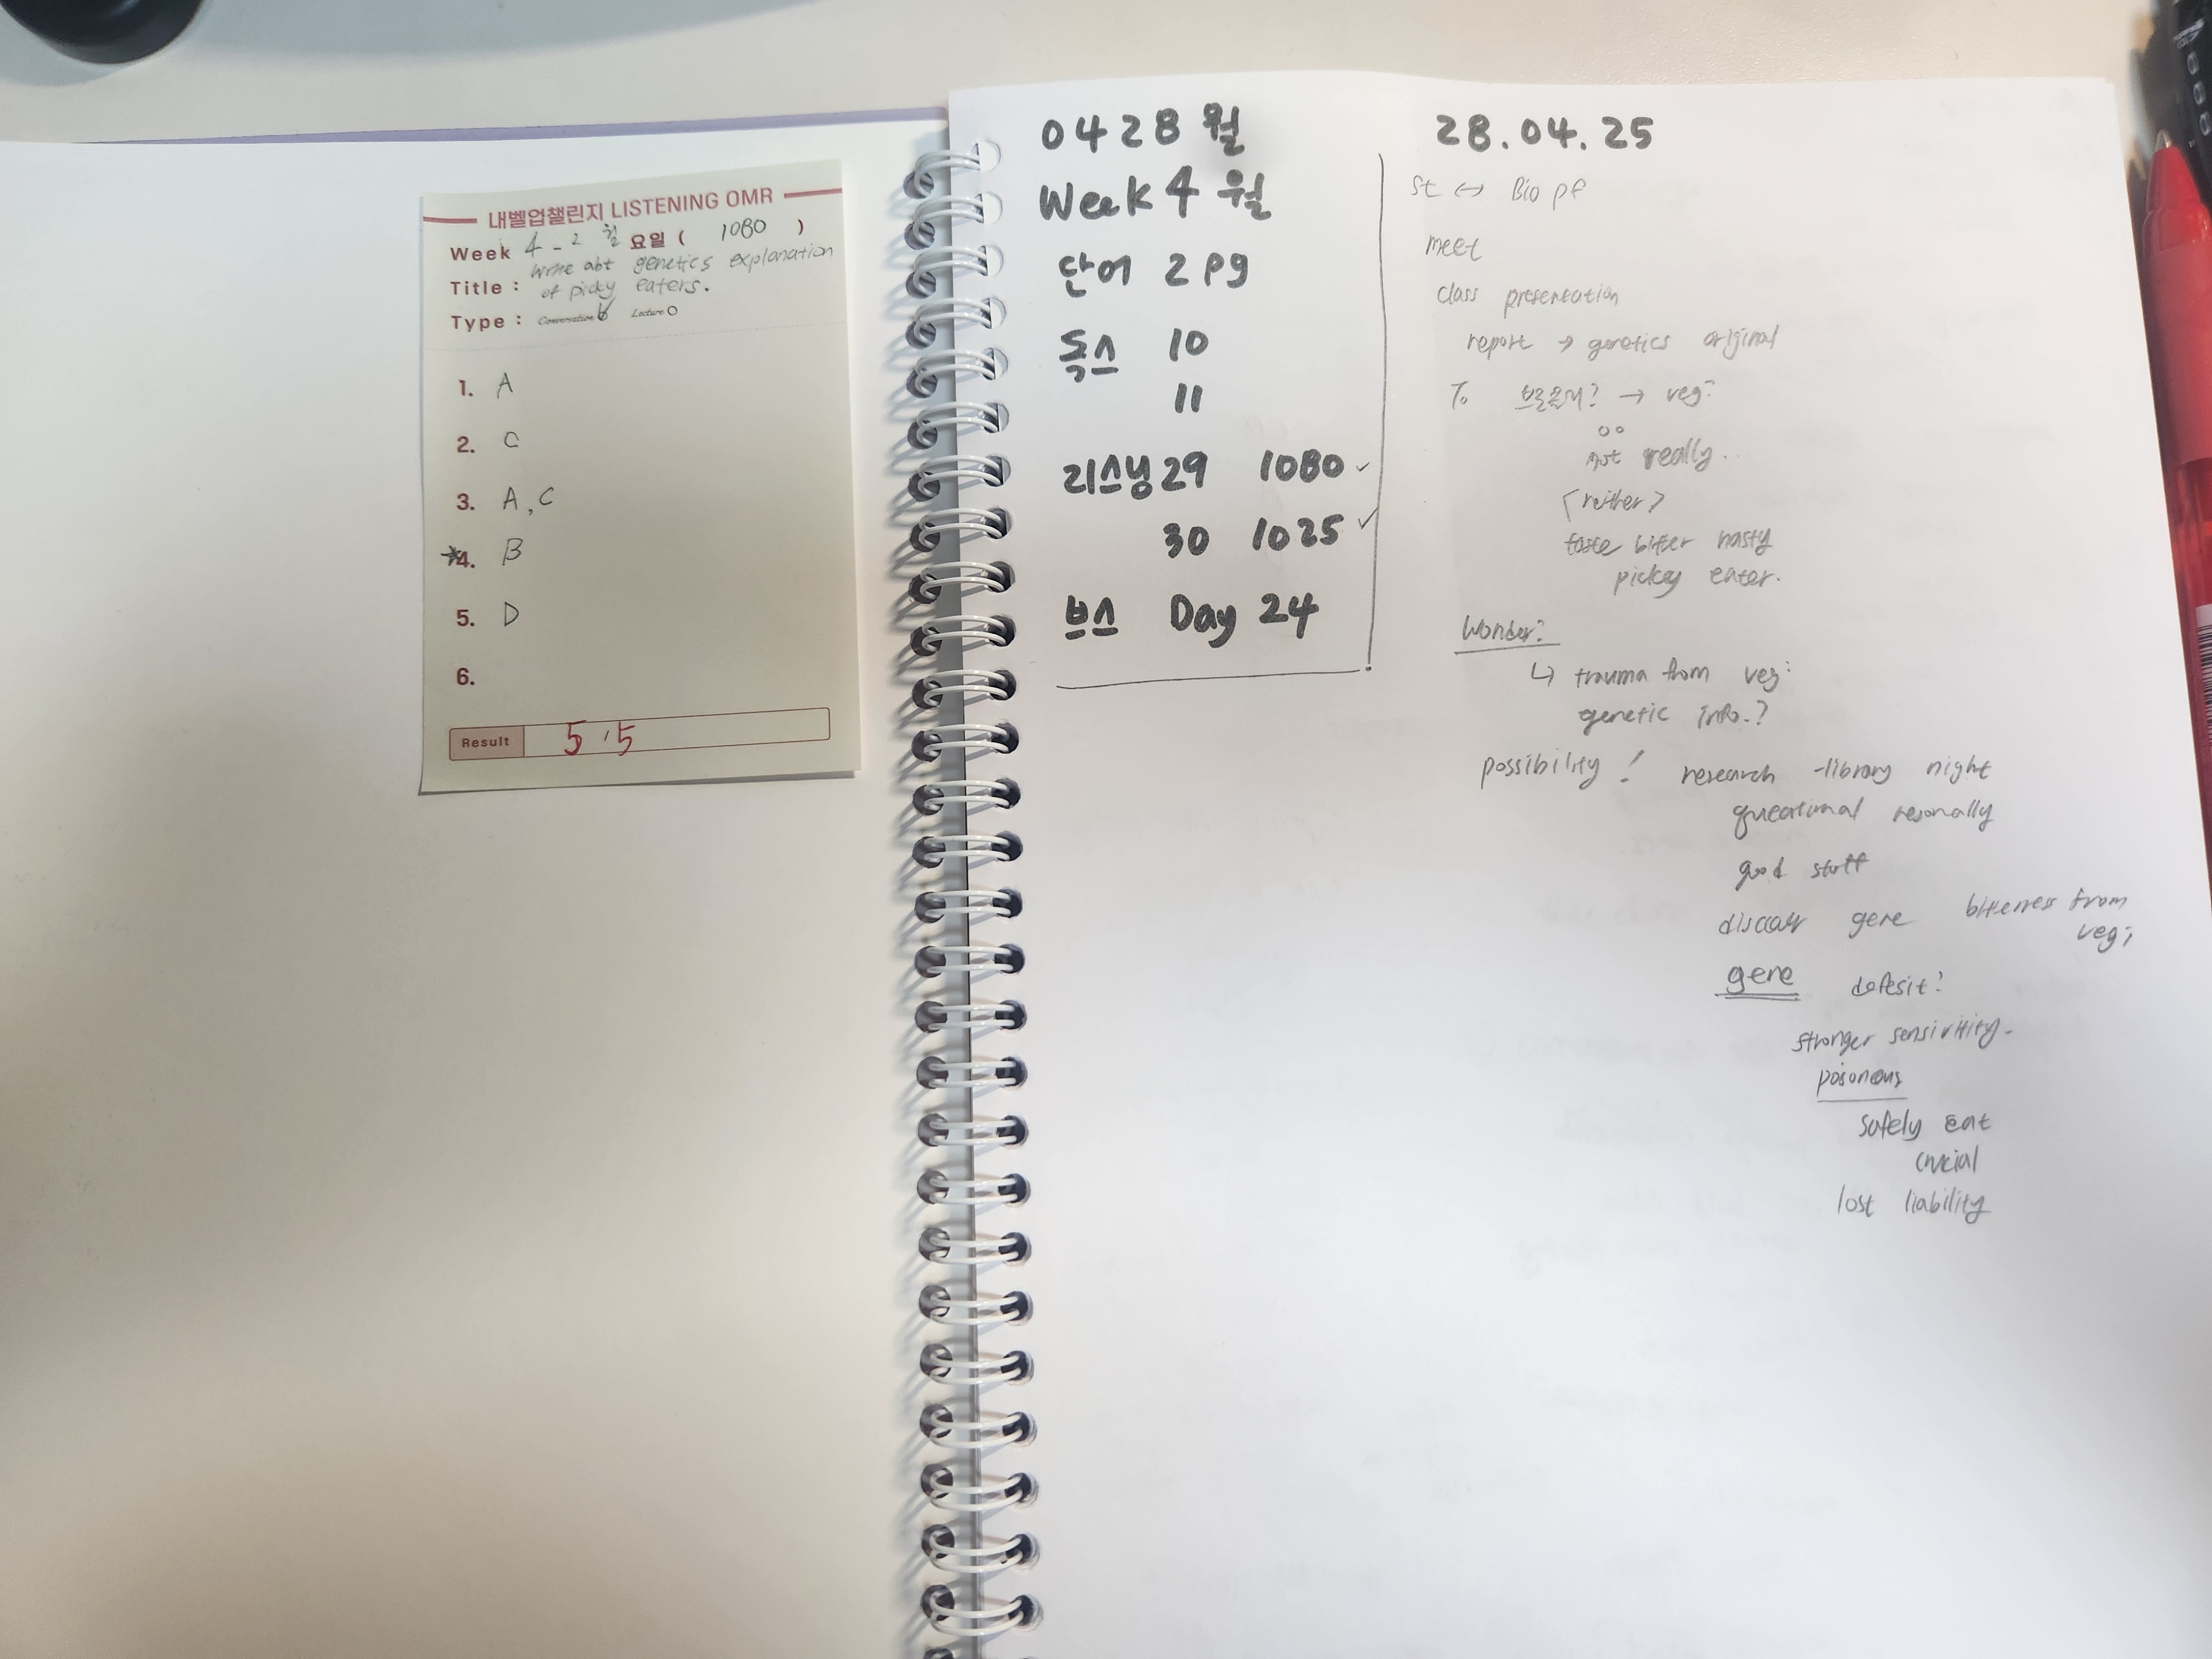 내벨업챌린지 LISTENING OMR
Week 4 - 2 월 요일 ( 1080 )
Title : Write abt genetics explanation
of picky eaters.
Type : Conversation Lecture
1. A
2. C
3. A, C
4. B
5. D
6.
Result 5 / 5
0428 월
Week 4 월
단어 2 pg
독스 10
11
리스닝 29 1080 ✓
30 1025 ✓
브스 Day 24
28.04.25
St ↔ Bio pf
meet
class presentation
report → genetics original
To → veg?
not really..
<neither>
taste bitter nasty
picky eater.
Wonder?
↳ trauma from veg:
genetic info.?
possibility! research -library night
good stuff
gene bitterness from
veg;
gene defesit?
stronger sensitivity-
poisonous
safely eat
crucial
lost liability